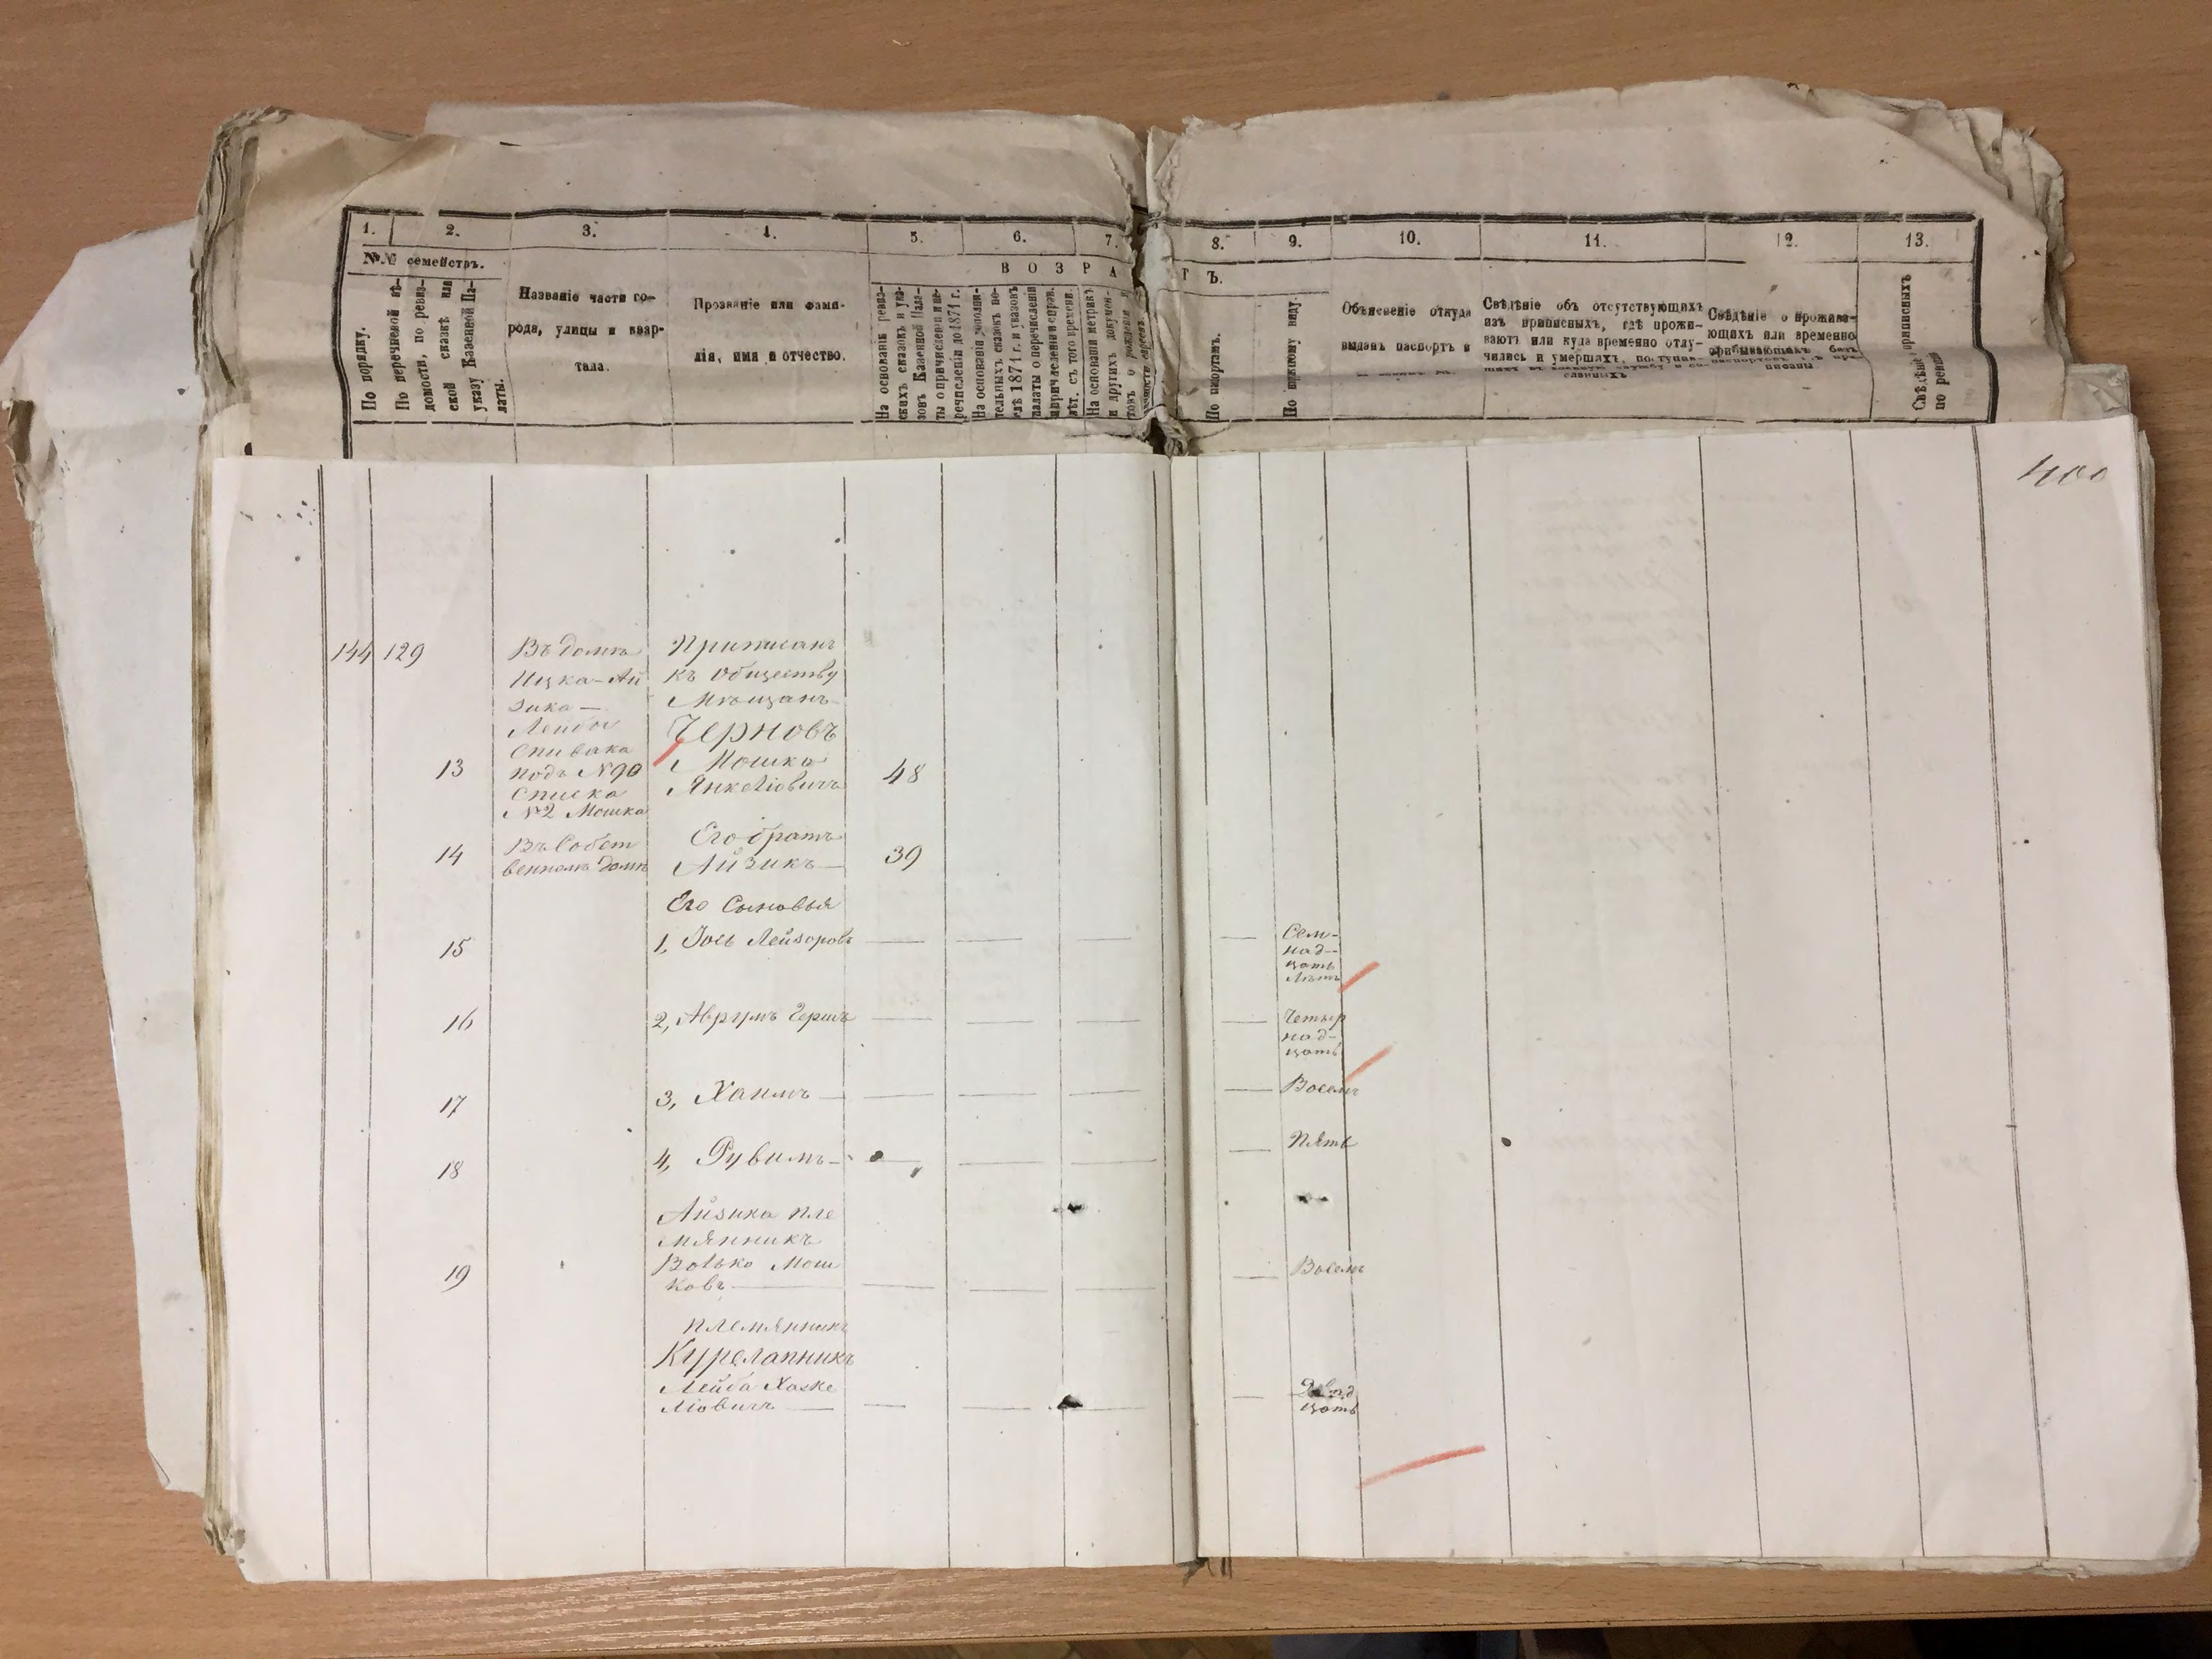 1.
2.
3.
4.
5.
6.
7.
8.
9.
10.
11.
12.
13.
№№ семействъ.
В О З Р А С Т Ъ.
По порядку.
По перечневой вѣ-
домости, по ревиз-
ской сказкѣ или
указу Казенной Па-
латы.
Названіе части го-
рода, улицы и квар-
тала.
Прозваніе или фами-
лія, имя и отчество.
На основаніи ревиз-
скихъ сказокъ и ука-
зовъ Казенной Пала-
ты о причисленіи и пе-
речисленіи до 1874 г.
На основаніи дополни-
тельныхъ сказокъ по-
слѣ 1874 г. и указовъ
палаты о перечисленіи
лѣт. съ того времени.
На основаніи метрикъ
и другихъ докумен-
товъ о рожденіи и
По паспортамъ.
По внешнему виду.
Объясненіе откуда
выданъ паспортъ и
Свѣдѣніе объ отсутствующихъ
изъ приписныхъ, гдѣ прожи-
ваютъ или куда временно отлу-
чились и умершихъ, поступив-
шихъ въ военную службу и со-
сланныхъ
Свѣдѣніе о прожива-
ющихъ или временно
прибывающихъ безъ
Свѣдѣніе приписныхъ
по реви
400
144 129
Въ домѣ
Ицка-Ай
зика-
Лейбы
Спивака
подъ №90
Списка
№2 Мошка
Приписанъ
къ обществу
Мѣщанъ
Черновъ
13 Мошка
Янкеліовичъ 48
Въ Собст
венномъ домѣ
Его братъ
14 Айзикъ 39
Его Сыновья
15 1, Іось Лейзоровъ
Сем-
над-
цать
лѣтъ
16 2, Аврумъ Гершъ
Четыр
над-
цать
17 3, Хаимъ Восемь
18 4, Рувимъ Пять
Айзика пле
мянникъ
19 Волько Мош
ковъ Восемь
племянникъ
Курелапникъ
Лейба Хаске
ліовичъ
Двад
цать